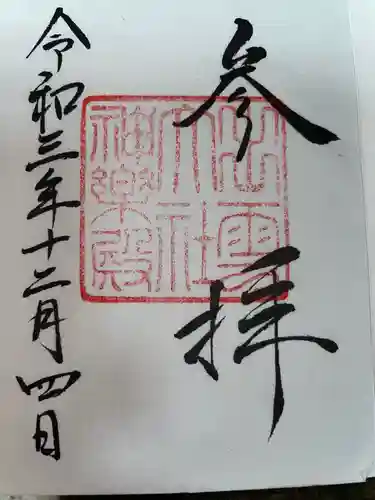 参拝
出雲
大社
神楽殿
令和三年十二月四日